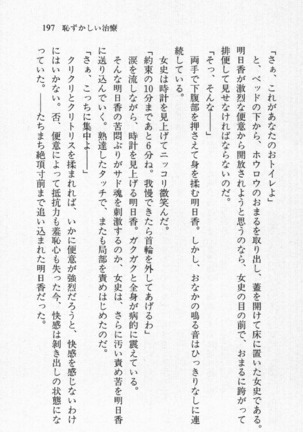 197　恥ずかしい治療
「さぁ、これがあなたのおトイレよ」
と、ベッドの下から、ホウロウのおまるを取り出し、蓋を開けて床に置いた女史である。
明日香が激烈な便意から開放されようと思うのなら、女史の目の前で、おまるに跨がって
排便して見せなければならないのだ。
「そっ、そんな――」
両手で下腹部を押さえて身を揉む明日香。しかし、おなかの鳴る音はひっきりなしに連
続している。
女史は時計を見上げてニッコリ微笑んだ。
「約束の10分まであと6分ね。我慢できたら首輪を外してあげるわ」
涙を流しながら、時計を見上げる明日香。ガクガクと全身が病的に震えている。
そんな明日香の苦悶ぶりがサド魂を刺激するのか、女史は、さらに汚い責め苦を明日香
に送り込んでいく。熟達したタッチで、またも局部を責めはじめたのだ。
「さぁ、こっちに集中よ――」
クリクリとクリトリスを揉まれれば、いかに便意が強烈だろうと、快感を感じないわけ
にはいかない。否、便意によって抵抗力も羞恥心も失った今、快感は剥き出しの状態にな
っていた。――たちまち絶頂寸前まで追い込まれた明日香だった。